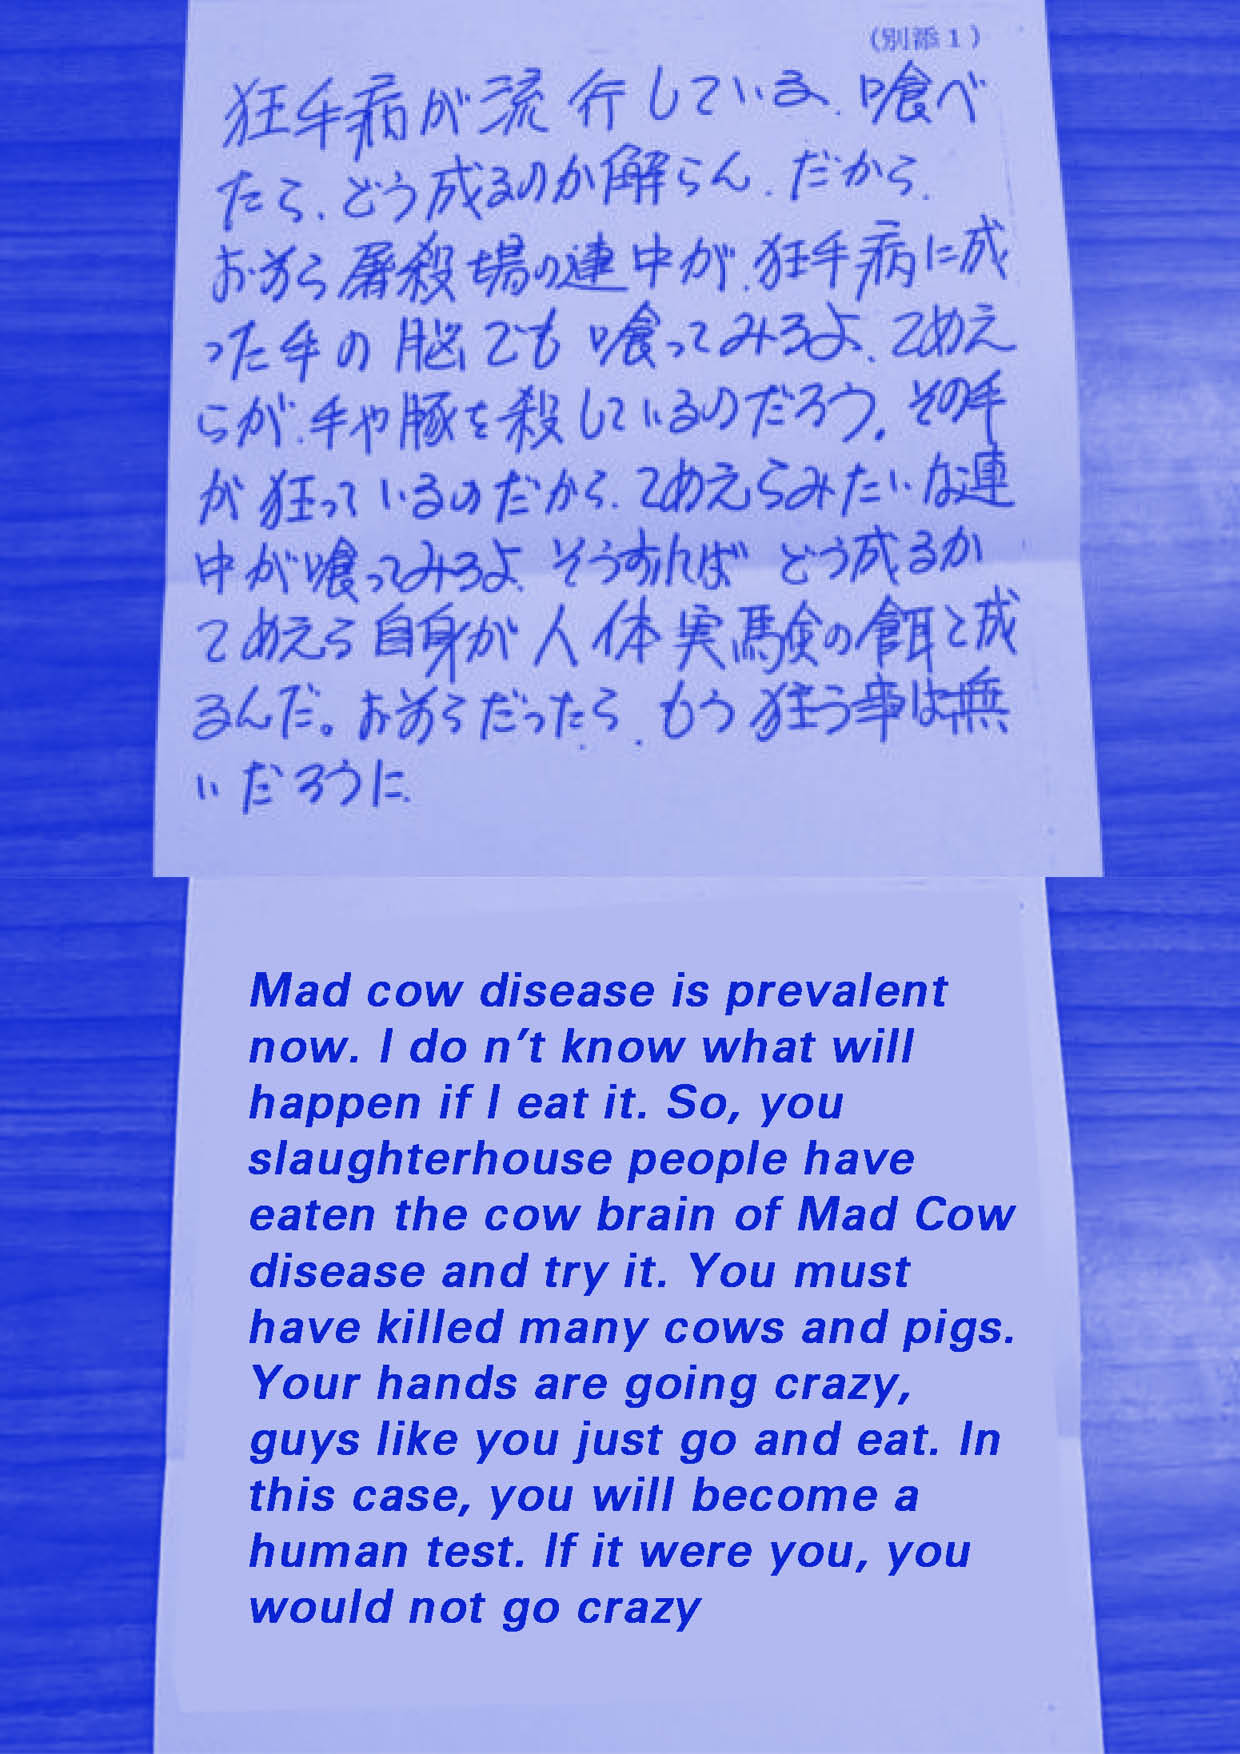 (別添１)
狂手病が流行している、喰べ
たら、どう成るのか解らん、だから、
お前ら屠殺場の連中が、狂手病に成
った手の脳でも喰ってみろよ、てめえ
らが、手や豚を殺しているのだろう。その手
が狂っているのだから、てめえらみたいな連
中が喰ってみろよ、そうすれば どう成るか
てめえら自身が人体実験の餌と成
るんだ。お前らだったら、もう狂う事は無
いだろうに、
Mad cow disease is prevalent
now. I do n't know what will
happen if I eat it. So, you
slaughterhouse people have
eaten the cow brain of Mad Cow
disease and try it. You must
have killed many cows and pigs.
Your hands are going crazy,
guys like you just go and eat. In
this case, you will become a
human test. If it were you, you
would not go crazy